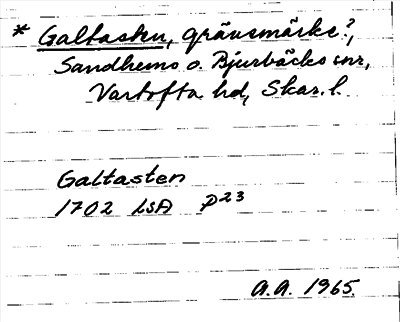 * Galtasten, gränsmärke?,
Sandhems o. Bjurbäcks snr,
Vartofta hd, Skar. l.
Galtasten
1702 LSA P23
A.A. 1965.